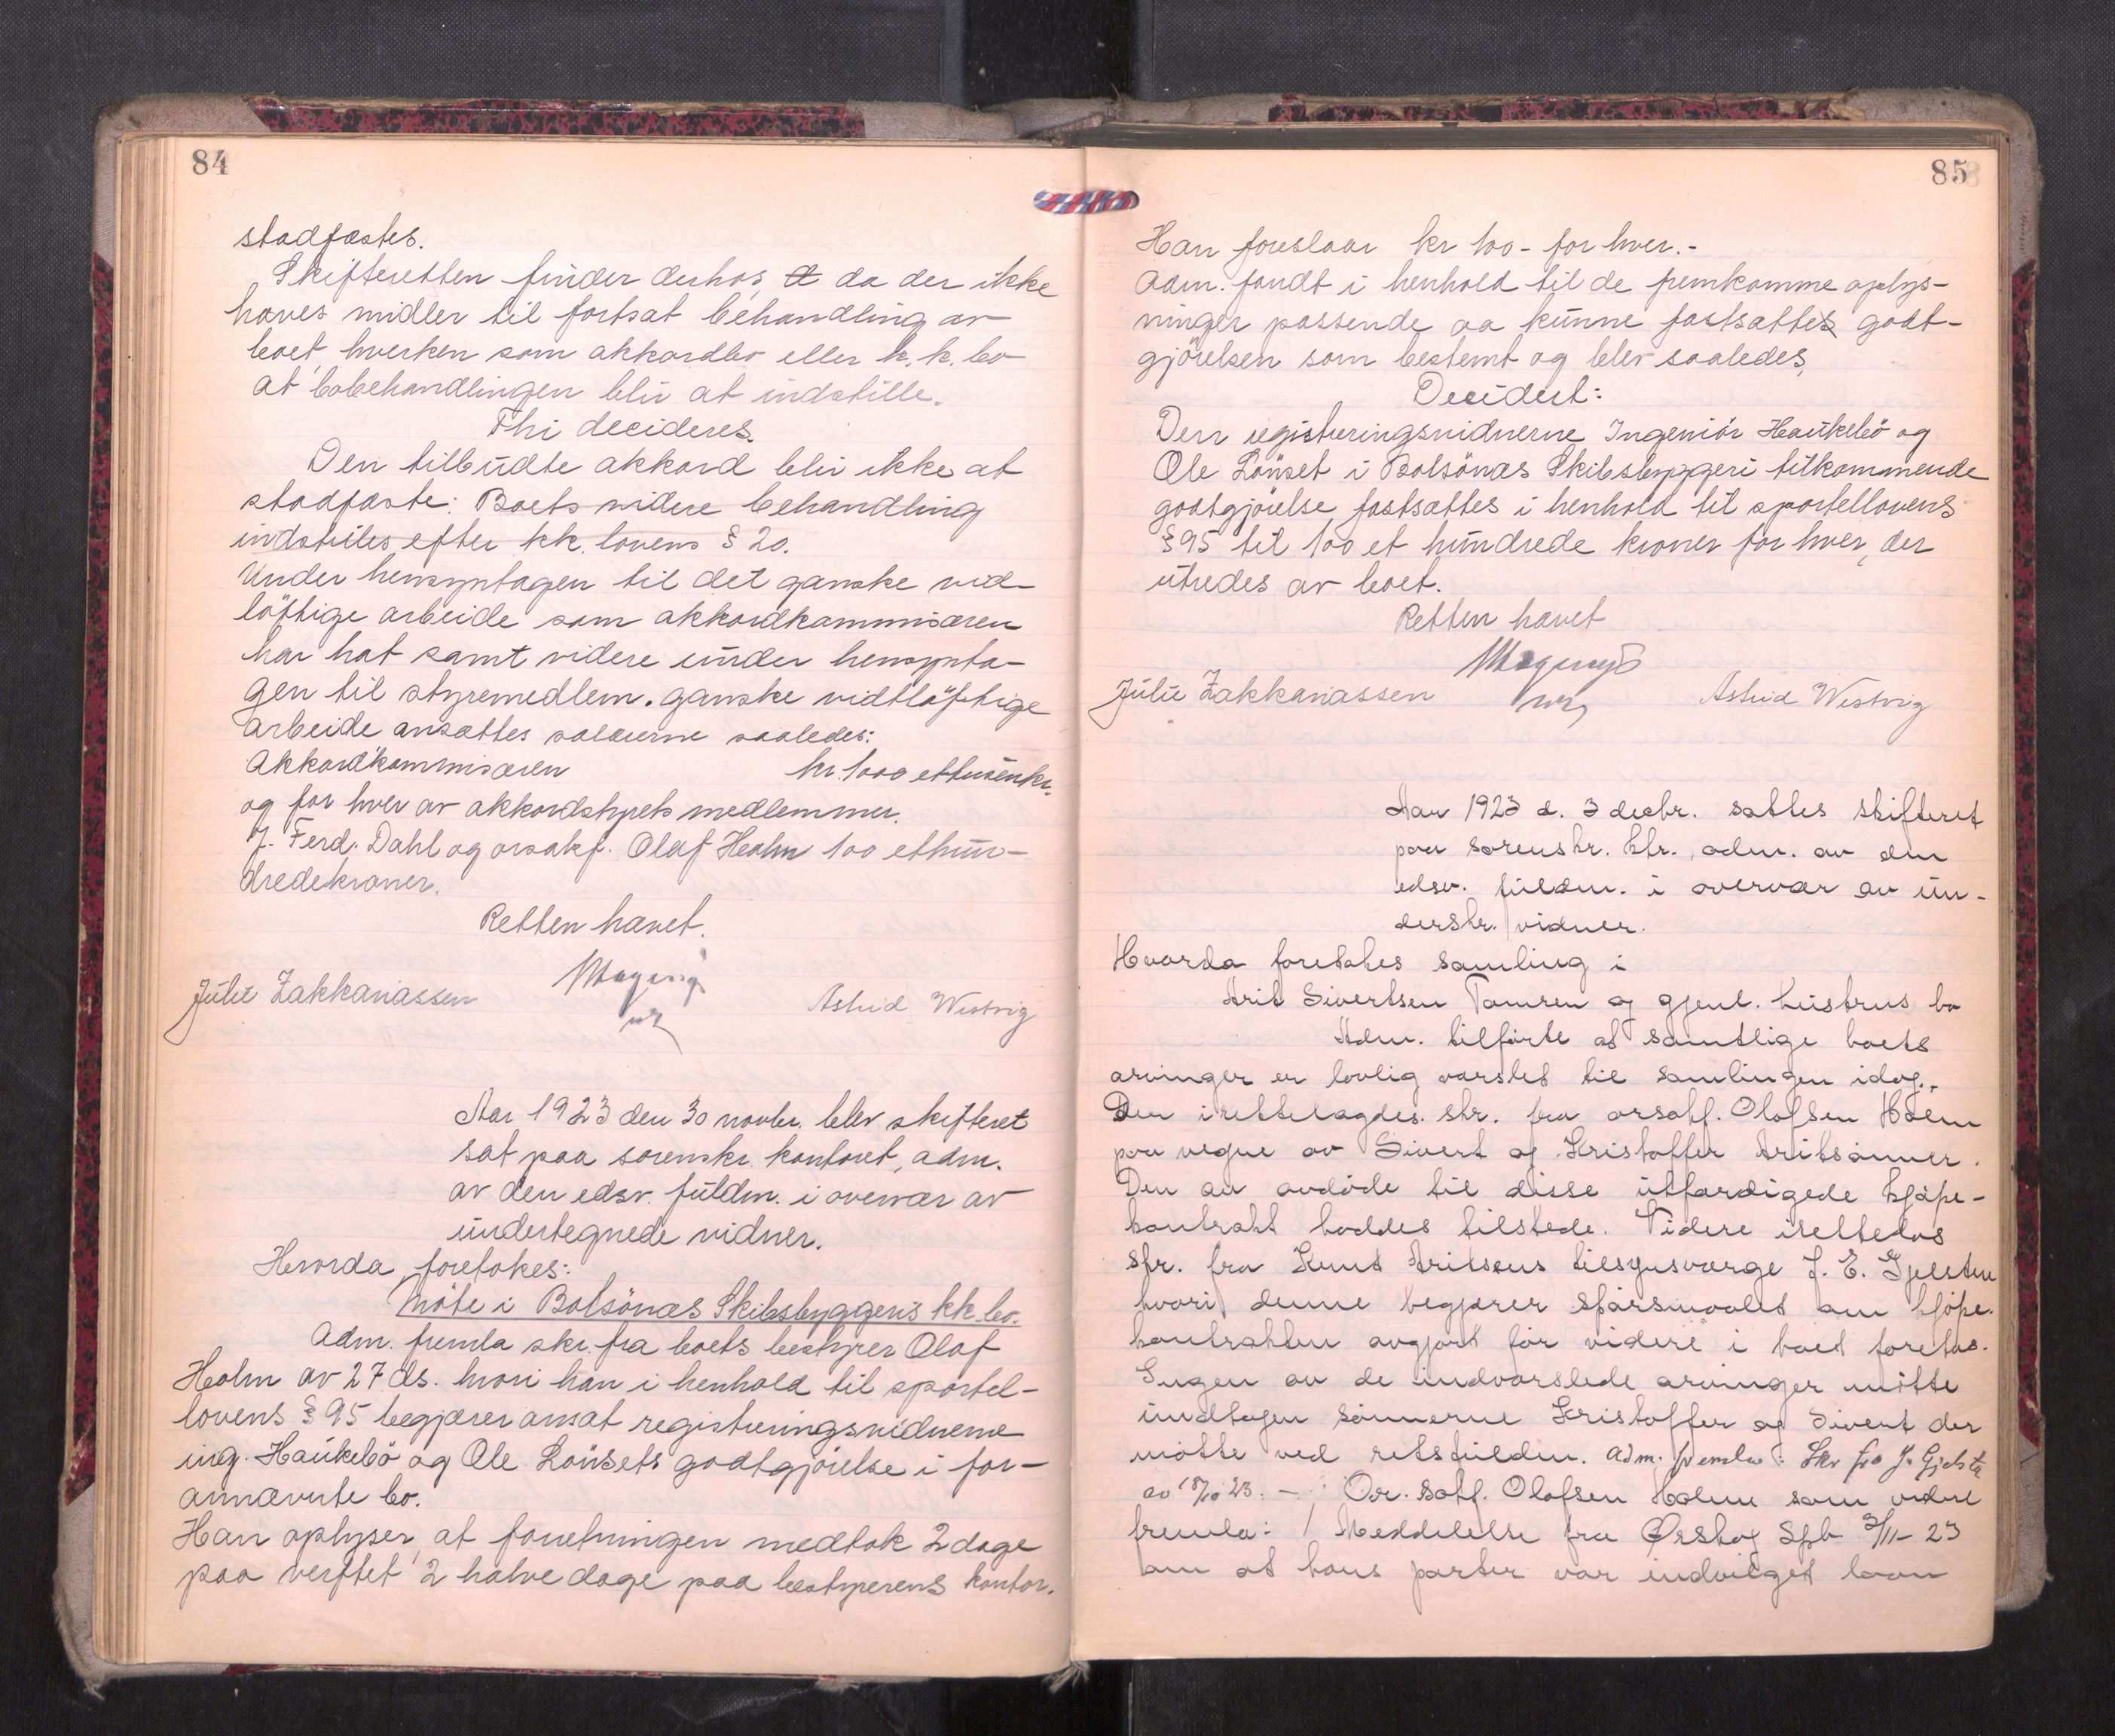 84
stadfæstes.
Skifteretten finder derhos, at da der ikke
haves midler til fortsat behandling av
boet hverken som akkordbo eller k.k. bo
at bobehandlingen blir at indstille.
Thi decideres.
Den tilbudte akkord blir ikke at
stadfæste: Boets videre behandling
indstilles efter kk. lovens § 20.
Under hensyntagen til det ganske vid-
löftige arbeide som akkordkommisæren
har hat samt videre under hensynta-
gen til styremedlem. ganske vidtlöftige
arbeide ansættes salærerne saaledes:
Akkordkommisæren kr. 1000 ettusenkr.
og for hver av akkordstyrets medlemmer.
J. Ferd. Dahl og orsakf. Olaf Holm 100 ethun-
dredekroner.
Retten hævet.
Julie Zakkariassen Astrid Westvig
Aar 1923 den 30 novbr. blev skifteret
sat paa sorenskr. kontoret, adm.
av den edsv. fuldm. i overvær av
undertegnede vidner.
Hvorda foretokes:
Möte i Bolsönæs Skibsbyggeris kk. bo.
Adm. fremla skr. fra boets bestyrer Olaf
Holm av 27 ds. hvori han i henhold til sportel-
lovens § 95 begjærer ansat registreringsvidnerne
ing. Haukebö og Ole Lönsets godtgjörelse i for-
annævnte bo.
Han oplyser, at forretningen medtok 2 dage
paa verftet 2 halve dage paa bestyrerens kontor.
85
Han foreslaar kr 100 - for hver.-
Adm. fandt i henhold til de fremkomne oplys-
ninger passende aa kunne fastsættes godt-
gjörelsen som bestemt og blev saaledes,
Decidert:
Den registreringsvidnerne Ingeniör Haukebö og
Ole Lönset i Bolsönæs Skibsbyggeri tilkommende
godtgjörelse fastsættes i henhold til sportellovens
§ 95 til 100 et hundrede kroner for hver, der
utredes av boet.
Retten hævet
Julie Zakkariassen Astrid Westvig
Aar 1923 d. 3 decbr. sattes skifteret
paa sorenskr. ktr., adm. av den
edsv. fuldm. i overvær av un-
derskr. vidner.
Hvorda foretokes samling i
Arit Sivertsen Tomren og gjenl. hustrus bo
Adm. tilförte at samtlige boets
arvinger er lovlig varslet til samlingen idag.
Der irettelagdes skr. fra orsakf. Olafsen Holm
paa vegne av Sivert og Kristoffer Aritsönner.
Den av avdöde til disse utfærdigede kjöpe-
kontrakt haddes tilstede. Videre irettelas
skr. fra Knut Aritsens tilsynsværge J. E. Gjelsten
hvori denne begjærer spörsmaalet om kjöpe-
kontrakten avgjort för videre i boet foretas.
Ingen av de indvarslede arvinger mötte
undtagen sönnerne Kristoffer og Sivert der
mötte ved retsfuldm. Adm. fremla: Skr fra J. Gjelsten
av 18/10 23. - Or. sakf. Olafsen Holm som videre
fremla: 1 Meddelelse fra Ørskog Spb 3/11- 23
om at hans parter var indvilget laan